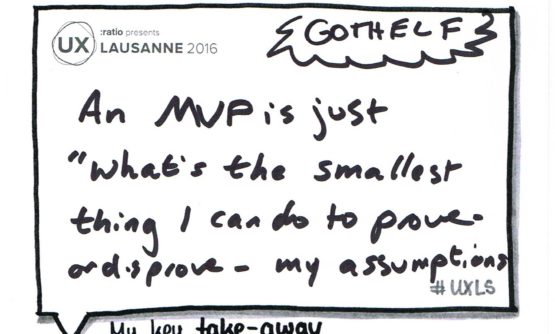 :ratio presents
UX LAUSANNE 2016
GOTHELF
An MVP is just
"what's the smallest
thing I can do to prove-
or disprove - my assumptions
#UXLS
My key take-away